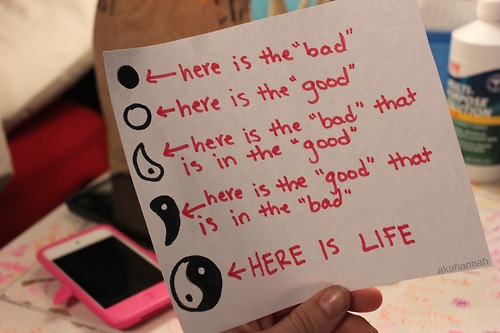 here is the "bad"
here is the "good"
here is the "bad" that
is in the "good"
here is the "good" that
is in the "bad"
HERE IS LIFE
akahannah